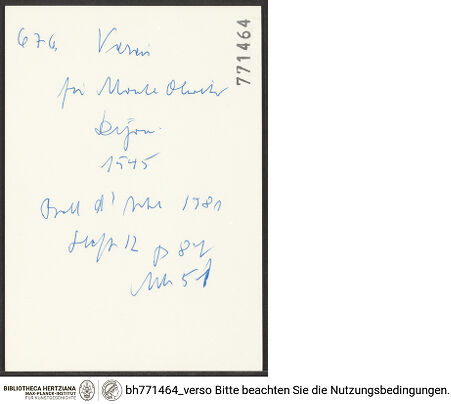 771464
676, Vasari
für Monte Oliveto
Dijon.
1545
Boll d'Arte 1981
Heft 12 p 84
Abb 51
BIBLIOTHECA HERTZIANA
MAX-PLANCK-INSTITUT
FÜR KUNSTGESCHICHTE
bh771464_verso Bitte beachten Sie die Nutzungsbedingungen.